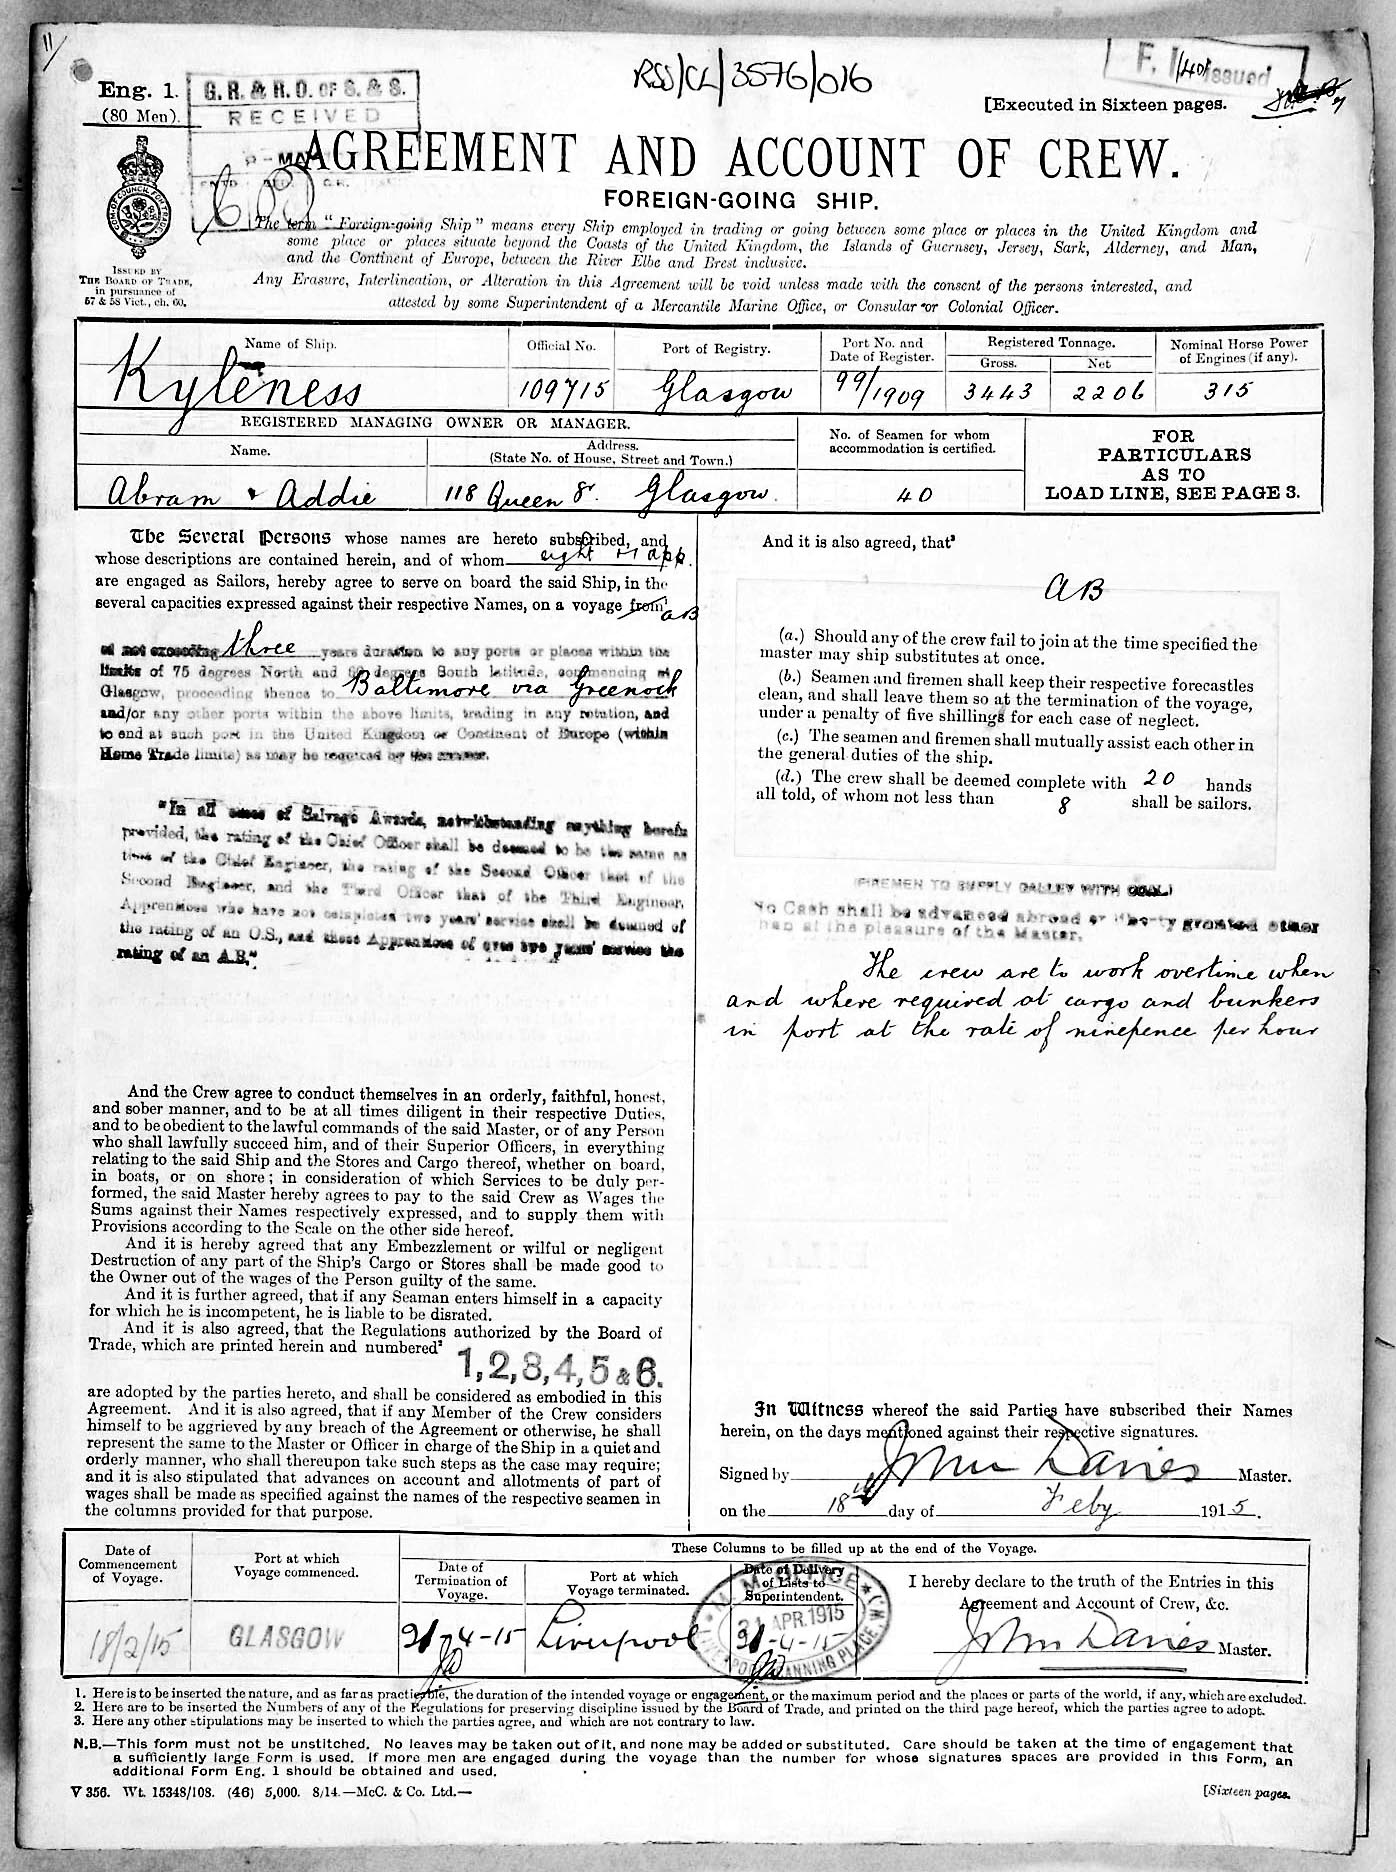 11/
RSS/CL/3576/016
F. 140 Issued
Eng. 1.
(80 Men).
G. R. & R. O. OF S. & S.
RECEIVED
[Executed in Sixteen pages.
AGREEMENT AND ACCOUNT OF CREW.
FOREIGN-GOING SHIP.
The term "Foreign-going Ship" means every Ship employed in trading or going between some place or places in the United Kingdom and
some place or places situate beyond the Coasts of the United Kingdom, the Islands of Guernsey, Jersey, Sark, Alderney, and Man,
and the Continent of Europe, between the River Elbe and Brest inclusive.
Any Erasure, Interlineation, or Alteration in this Agreement will be void unless made with the consent of the persons interested, and
attested by some Superintendent of a Mercantile Marine Office, or Consular or Colonial Officer.
ISSUED BY
THE BOARD OF TRADE,
in pursuance of
57 & 58 Vict., ch. 60.
Name of Ship.
Official No.
Port of Registry.
Port No. and
Date of Register.
Registered Tonnage.
Gross.
Net
Nominal Horse Power
of Engines (if any).
Kyleness
109715
Glasgow
99/1909
3443
2206
315
REGISTERED MANAGING OWNER OR MANAGER.
Name.
Address.
(State No. of House, Street and Town.)
No. of Seamen for whom
accommodation is certified.
FOR
PARTICULARS
AS TO
LOAD LINE, SEE PAGE 3.
Abram & Addie
118 Queen St. Glasgow.
40
The Several Persons whose names are hereto subscribed, and
whose descriptions are contained herein, and of whom eight + 1 app.
are engaged as Sailors, hereby agree to serve on board the said Ship, in the
several capacities expressed against their respective Names, on a voyage from¹
AB
of not exceeding three years duration to any ports or places within the
limits of 75 degrees North and 60 degrees South latitude, commencing at
Glasgow, proceeding thence to Baltimore via Greenock
and/or any other ports within the above limits, trading in any rotation, and
to end at such port in the United Kingdom or Continent of Europe (within
Home Trade limits) as may be required by the master.
"In all cases of Salvage Awards, notwithstanding anything herein
provided, the rating of the Chief Officer shall be deemed to be the same as
that of the Chief Engineer, the rating of the Second Officer that of the
Second Engineer, and the Third Officer that of the Third Engineer,
Apprentices who have not completed two years' service shall be deemed of
the rating of an O.S., and those Apprentices of over two years' service the
rating of an A.B."
And the Crew agree to conduct themselves in an orderly, faithful, honest,
and sober manner, and to be at all times diligent in their respective Duties,
and to be obedient to the lawful commands of the said Master, or of any Person
who shall lawfully succeed him, and of their Superior Officers, in everything
relating to the said Ship and the Stores and Cargo thereof, whether on board,
in boats, or on shore; in consideration of which Services to be duly per-
formed, the said Master hereby agrees to pay to the said Crew as Wages the
Sums against their Names respectively expressed, and to supply them with
Provisions according to the Scale on the other side hereof.
And it is hereby agreed that any Embezzlement or wilful or negligent
Destruction of any part of the Ship's Cargo or Stores shall be made good to
the Owner out of the wages of the Person guilty of the same.
And it is further agreed, that if any Seaman enters himself in a capacity
for which he is incompetent, he is liable to be disrated.
And it is also agreed, that the Regulations authorized by the Board of
Trade, which are printed herein and numbered²
1, 2, 3, 4, 5 & 6.
are adopted by the parties hereto, and shall be considered as embodied in this
Agreement. And it is also agreed, that if any Member of the Crew considers
himself to be aggrieved by any breach of the Agreement or otherwise, he shall
represent the same to the Master or Officer in charge of the Ship in a quiet and
orderly manner, who shall thereupon take such steps as the case may require;
and it is also stipulated that advances on account and allotments of part of
wages shall be made as specified against the names of the respective seamen in
the columns provided for that purpose.
And it is also agreed, that³
AB
(a.) Should any of the crew fail to join at the time specified the
master may ship substitutes at once.
(b.) Seamen and firemen shall keep their respective forecastles
clean, and shall leave them so at the termination of the voyage,
under a penalty of five shillings for each case of neglect.
(c.) The seamen and firemen shall mutually assist each other in
the general duties of the ship.
(d.) The crew shall be deemed complete with 20 hands
all told, of whom not less than 8 shall be sailors.
(FIREMEN TO SUPPLY GALLEY WITH COAL)
No Cash shall be advanced abroad or liberty granted other
than at the pleasure of the Master.
The crew are to work overtime when
and where required at cargo and bunkers
in port at the rate of ninepence per hour
In Witness whereof the said Parties have subscribed their Names
herein, on the days mentioned against their respective signatures.
Signed by John Davies Master.
on the 18th day of Feby 1915.
Date of
Commencement
of Voyage.
Port at which
Voyage commenced.
These Columns to be filled up at the end of the Voyage.
Date of
Termination of
Voyage.
Port at which
Voyage terminated.
Date of Delivery
of Lists to
Superintendent.
I hereby declare to the truth of the Entries in this
Agreement and Account of Crew, &c.
18/2/15
GLASGOW
21-4-15
Liverpool
21-4-15
M. M. OFFICE
21 APR. 1915
John Davies Master.
1. Here is to be inserted the nature, and as far as practicable, the duration of the intended voyage or engagement, or the maximum period and the places or parts of the world, if any, which are excluded.
2. Here are to be inserted the Numbers of any of the Regulations for preserving discipline issued by the Board of Trade, and printed on the third page hereof, which the parties agree to adopt.
3. Here any other stipulations may be inserted to which the parties agree, and which are not contrary to law.
N.B.—This form must not be unstitched. No leaves may be taken out of it, and none may be added or substituted. Care should be taken at the time of engagement that
a sufficiently large Form is used. If more men are engaged during the voyage than the number for whose signatures spaces are provided in this Form, an
additional Form Eng. 1 should be obtained and used.
V 356. Wt. 15348/108. (46) 5,000. 8/14.—McC. & Co. Ltd.—
[Sixteen pages.